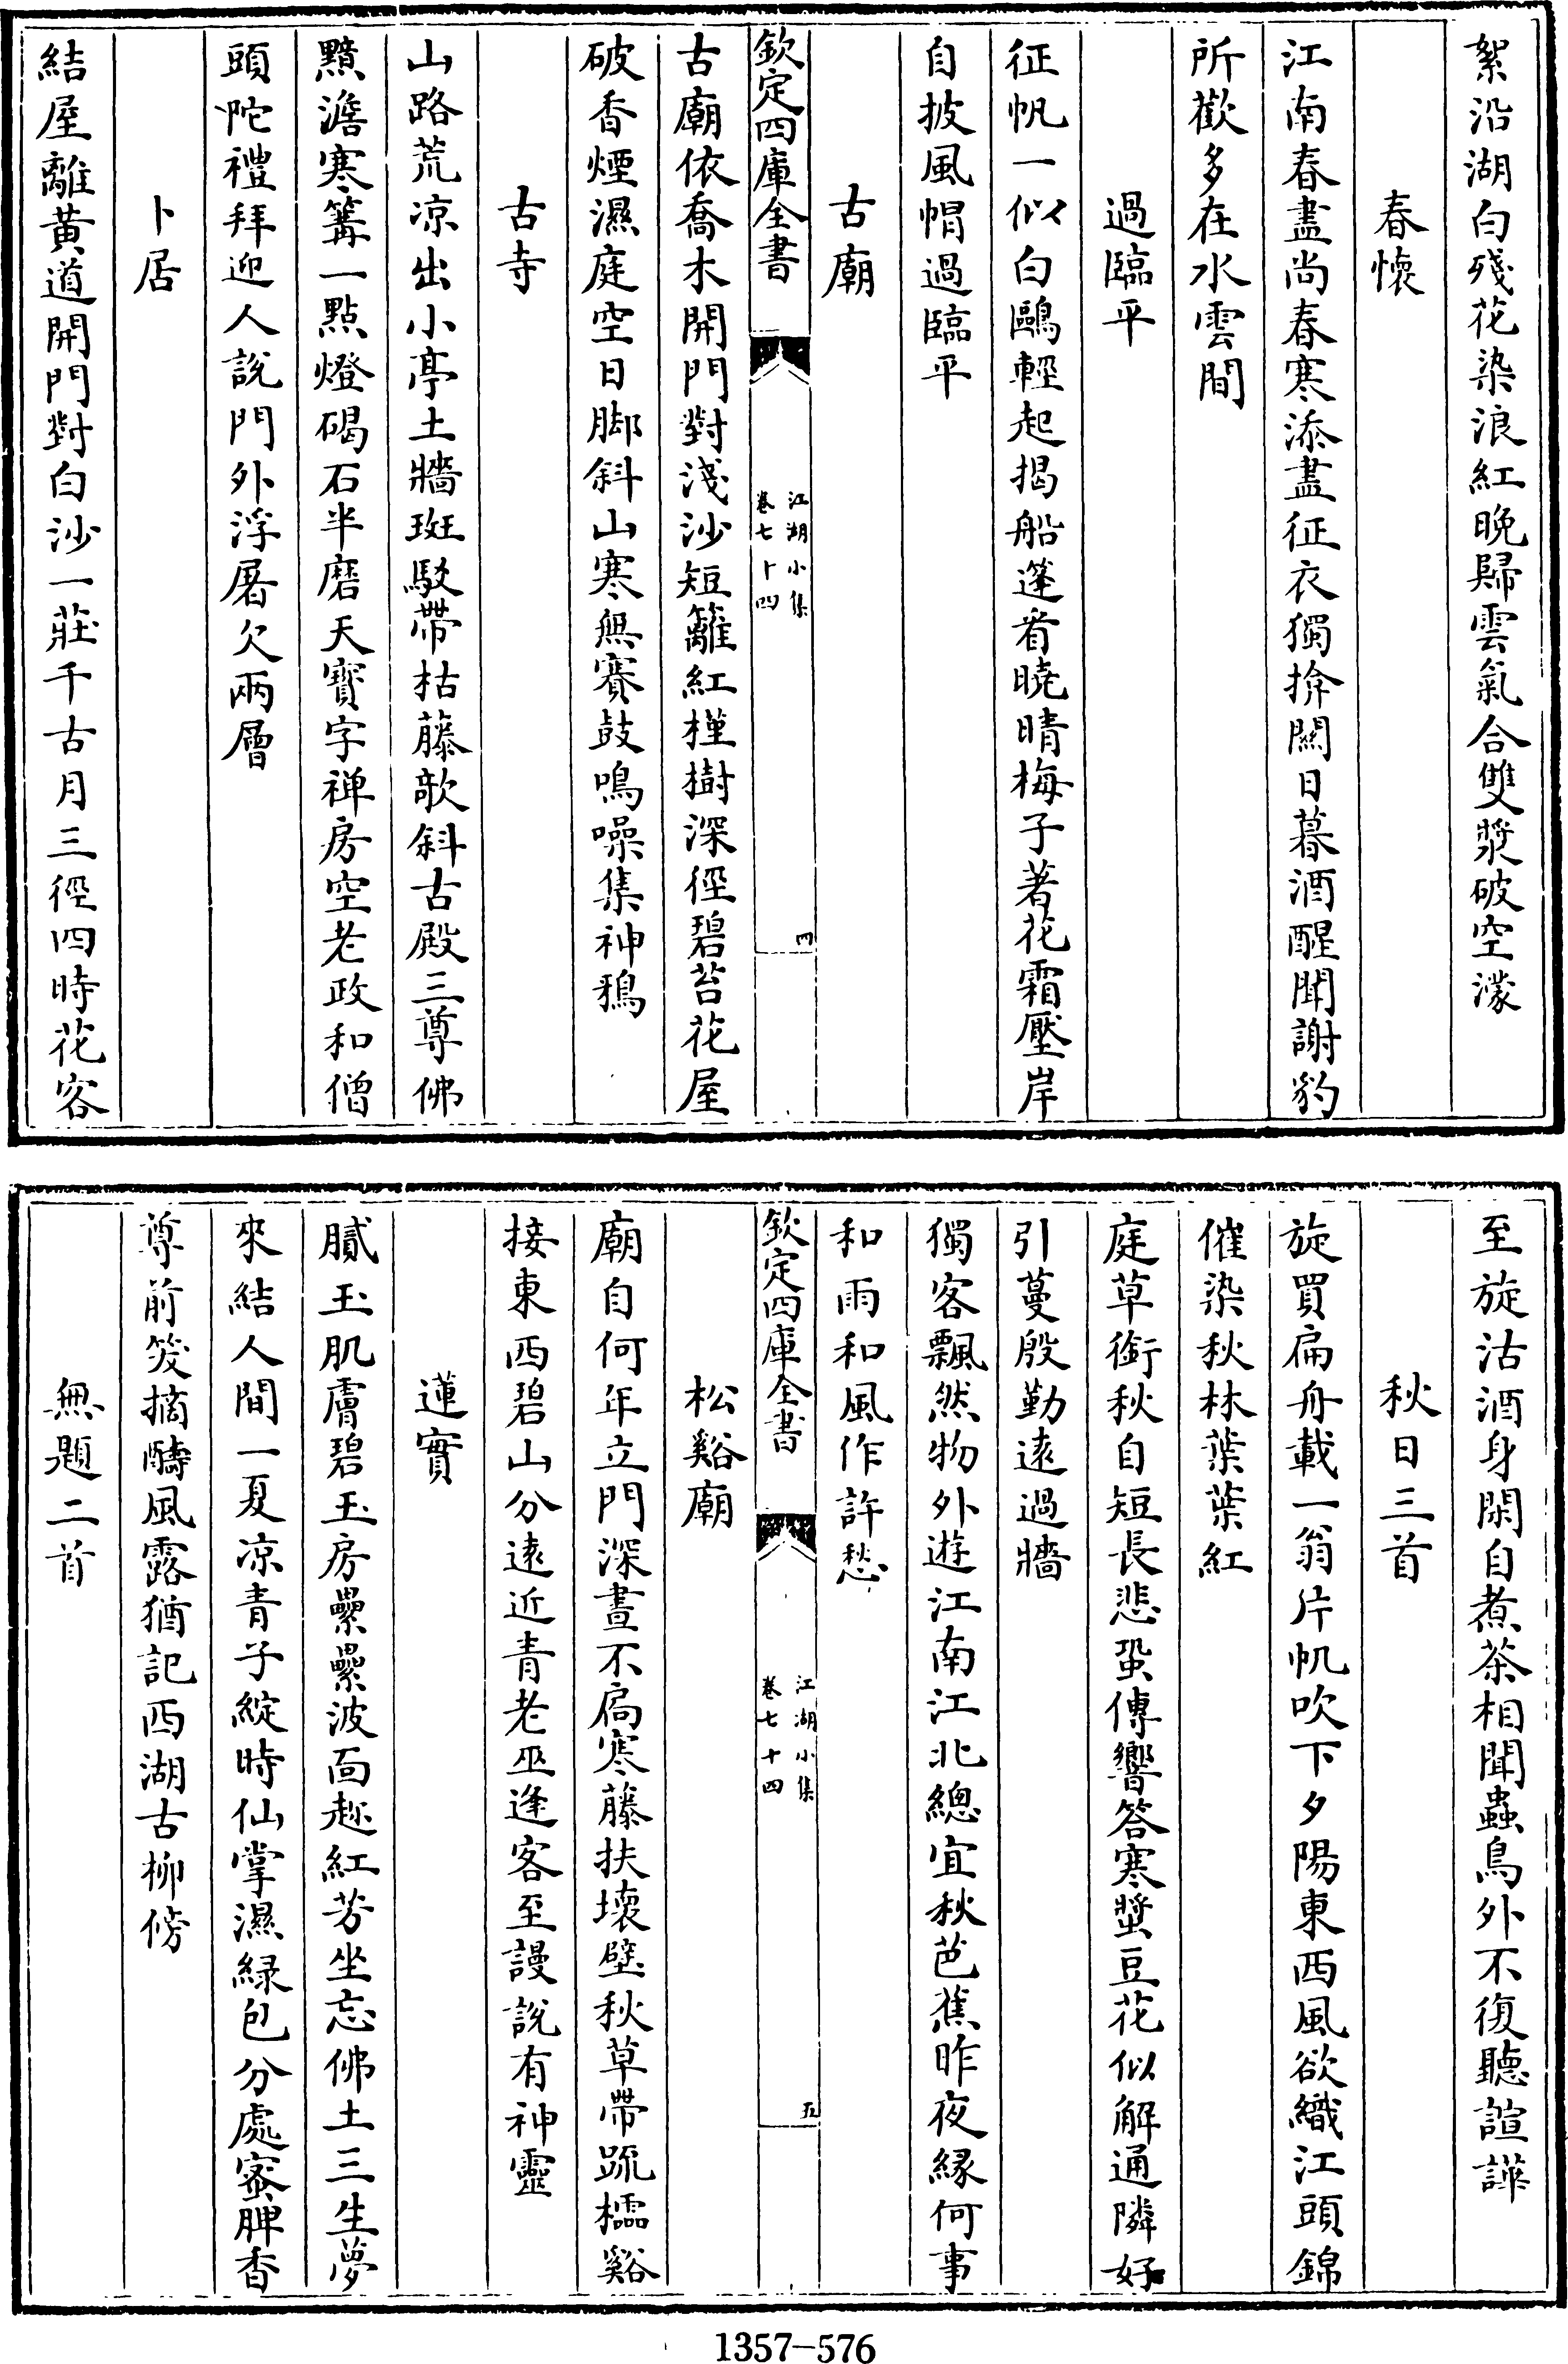 絮沿湖白殘花染浪紅晚歸雲氣合雙槳破空濛
春懷
江南春盡尚春寒添盡征衣獨揜關日暮酒醒聞謝豹
所歡多在水雲間
過臨平
征帆一似白鷗輕起揭船篷看曉晴梅子著花霜壓岸
自披風帽過臨平
古廟
欽定四庫全書
江湖小集
卷七十四
四
古廟依喬木開門對淺沙短籬紅槿樹深徑碧苔花屋
破香煙濕庭空日脚斜山寒無賽鼓鳴噪集神鴉
古寺
山路荒凉出小亭土牆斑駁帶枯藤欹斜古殿三尊佛
黯澹寒篝一點燈碣石半磨天寶字禅房空老政和僧
頭陀禮拜迎人說門外浮屠欠兩層
卜居
結屋離黄道開門對白沙一莊千古月三徑四時花客
至旋沽酒身閑自煮茶相聞蟲鳥外不復聽諠譁
秋日三首
旋買扁舟載一翁片帆吹下夕陽東西風欲織江頭錦
催染秋林葉葉紅
庭草銜秋自短長悲蛩傳響答寒螿豆花似解通隣好
引蔓殷勤遠過牆
獨客飄然物外遊江南江北總宜秋芭蕉昨夜緣何事
和雨和風作許愁
欽定四庫全書
江湖小集
卷七十四
五
松谿廟
廟自何年立門深晝不扃寒藤扶壞壁秋草帶疏櫺谿
接東西碧山分遠近青老巫逢客至謾說有神靈
蓮實
膩玉肌膚碧玉房纍纍波面趂紅芳坐忘佛土三生夢
來結人間一夏凉青子綻時仙掌濕緑包分處蜜脾香
尊前笑摘醻風露猶記西湖古柳傍
無題二首
1357-576